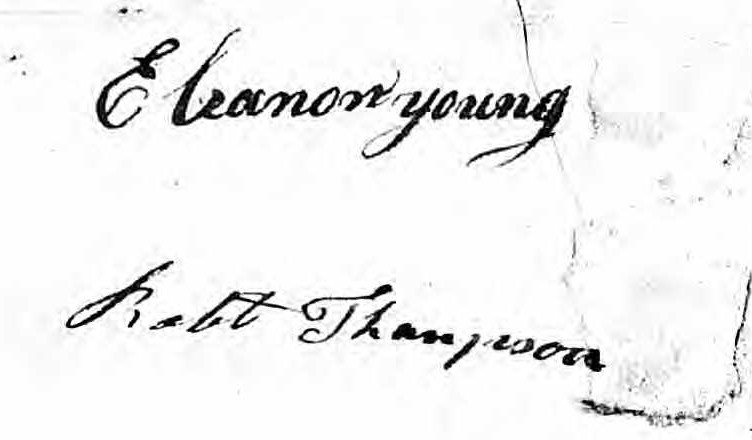 Eleanor young
Robt Thompson